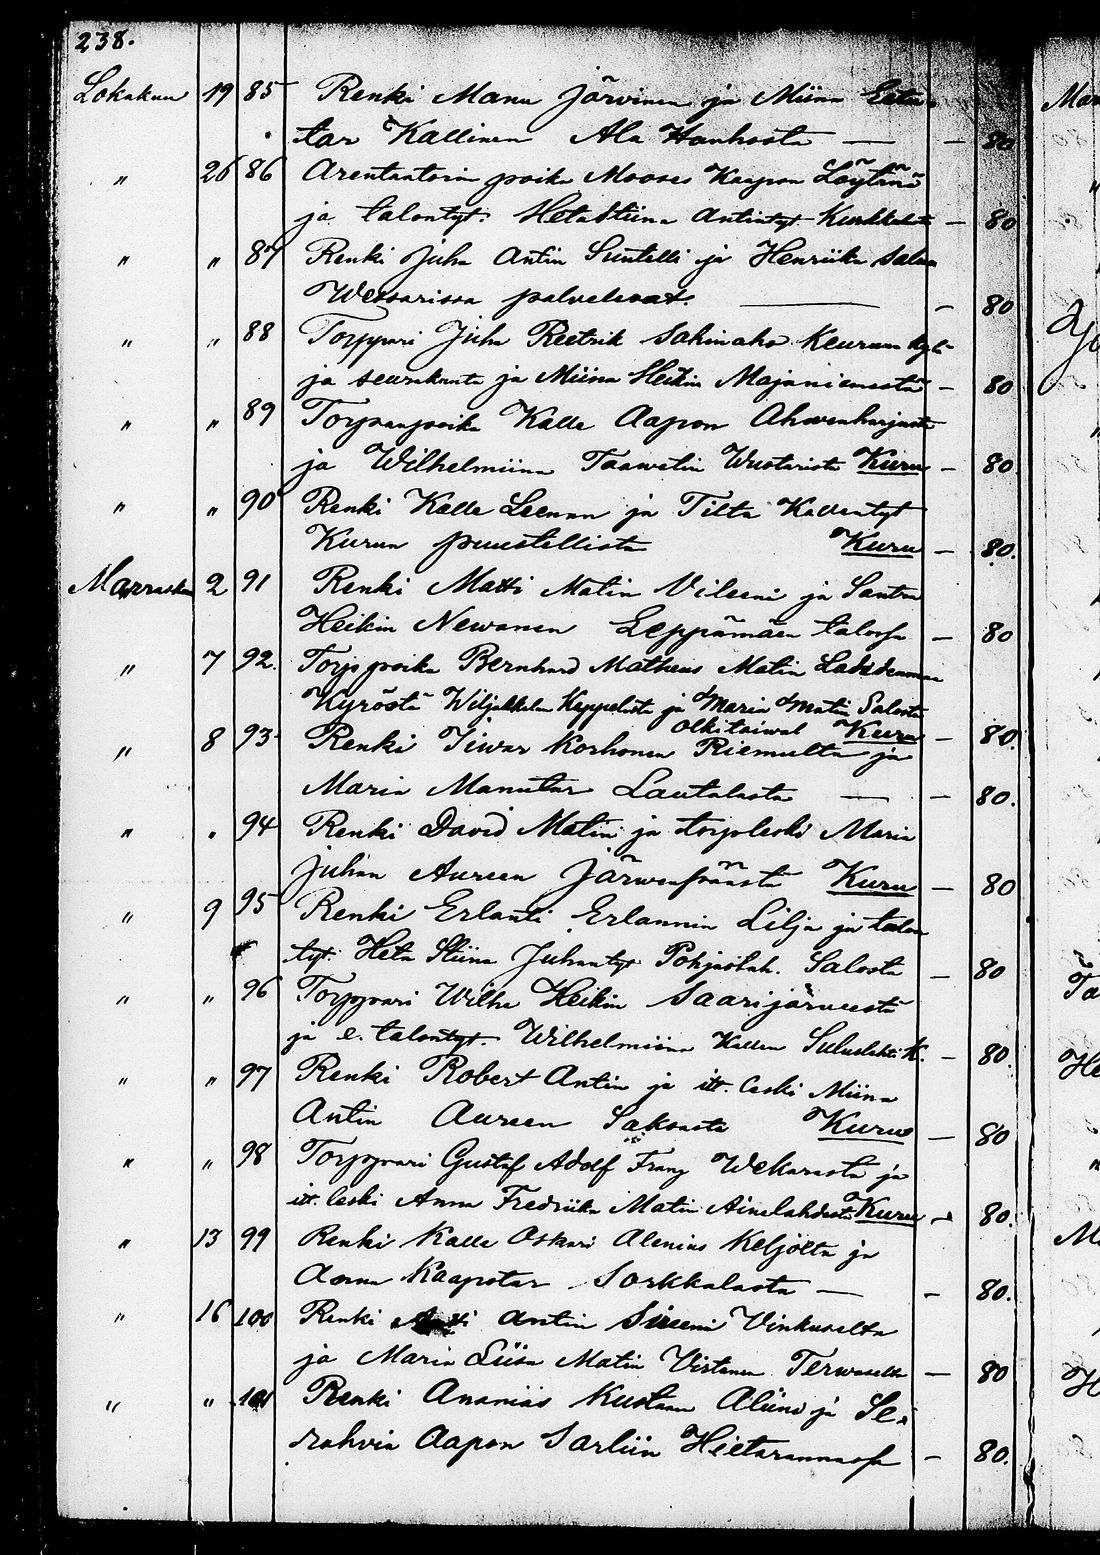 238.
Lokakuu 19 85 Renki Manu Järvinen ja Miina Eeta-
tar Kallinen Ala Hanhosta — — 80
" 26 86 Arentaatorin poika Mooses Kaapon Löytänä
ja talontyt. Heta Stiina Antintyt. — 80
" " 87 Renki Juha Antin Suntelli ja Henriika Salm
Wessarissa palvelevat. — 80
" " 88 Torppari Juha Reetrik Sahinaho Keuruun kyl-
ja seurakunta ja Miina Heikin Majaniemestä — 80
" " 89 Torpanpoika Kalle Aapon Ahvenharjusta
ja Wilhelmiina Taawetin Kuru — 80
" " 90 Renki Kalle Leenan ja Tilta Kallentyt
Kurun puustellista Kuru — 80.
Marraskuu 2 91 Renki Matti Matin Vileeni ja Santra
Heikin Newanen Leppämäen talossa — 80
" 7 92. Torp poika Bernhard Matheus Matin
Kyröstä Wiljakkalan Kappelista ja Maria Matin Salosta
Olkitaival Kuru — 80.
" 8 93 Renki Iiwar Korhonen Riemulta ja
Maria Manutar Lautalasta — — 80.
" " 94 Renki David Matin ja torp leski Maria
Juhan Aureen Järwenpäästä Kuru — 80
" 9 95 Renki Erlanti Erlannin Lilja ja talon
tyt. Heta Stiina Juhantyt Pohjaslah. Salosta — 80
" " 96 Torppari Wilhe Heikin Saarijärveestä
ja e. talontyt. Wilhelmiina Kallen K. — 80.
" " 97 Renki Robert Antin ja itt. leski Miina
Antin Aureen Saksasta Kuru — 80
" " 98 Torppari Gustaf Adolf Franz Wekarasta ja
itt. leski Anna Fredriika Matin Ainelahdest. Kuru — 80.
" 13 99 Renki Kalle Oskari Alenius Keljölta ja
Anna Kaapotar Sorkkalasta — — 80.
" 16 100 Renki Antin Sireeni Vinkuselta
ja Maria Liisa Matin Virtanen — 80
" " 101 Renki Ananias Kustaan Aliini ja Se-
rahvia Aapon Sarliin Hietarannassa — 80.